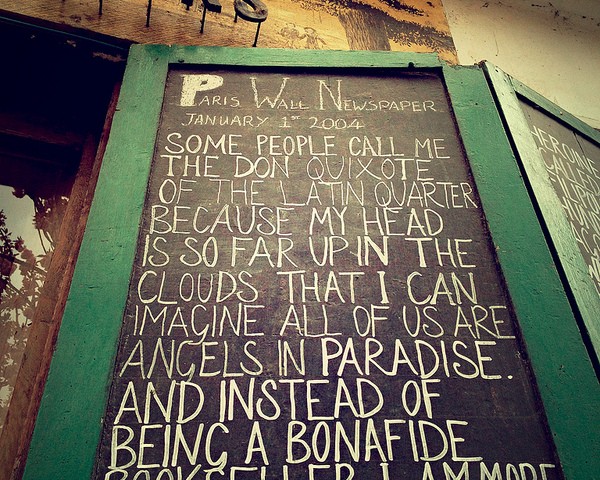 PARIS WALL NEWSPAPER
JANUARY 1ST 2004
SOME PEOPLE CALL ME
THE DON QUIXOTE
OF THE LATIN QUARTER
BECAUSE MY HEAD
IS SO FAR UP IN THE
CLOUDS THAT I CAN
IMAGINE ALL OF US ARE
ANGELS IN PARADISE.
AND INSTEAD OF
BEING A BONAFIDE
BOOKSELLER I AM MORE